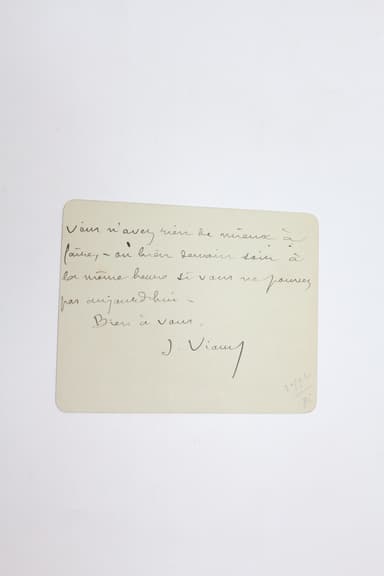 vous n'avez rien de mieux à
faire, - ou bien demain soir à
la même heure si vous ne pouvez
pas aujourd'hui -
Bien à vous.
J. Viaud